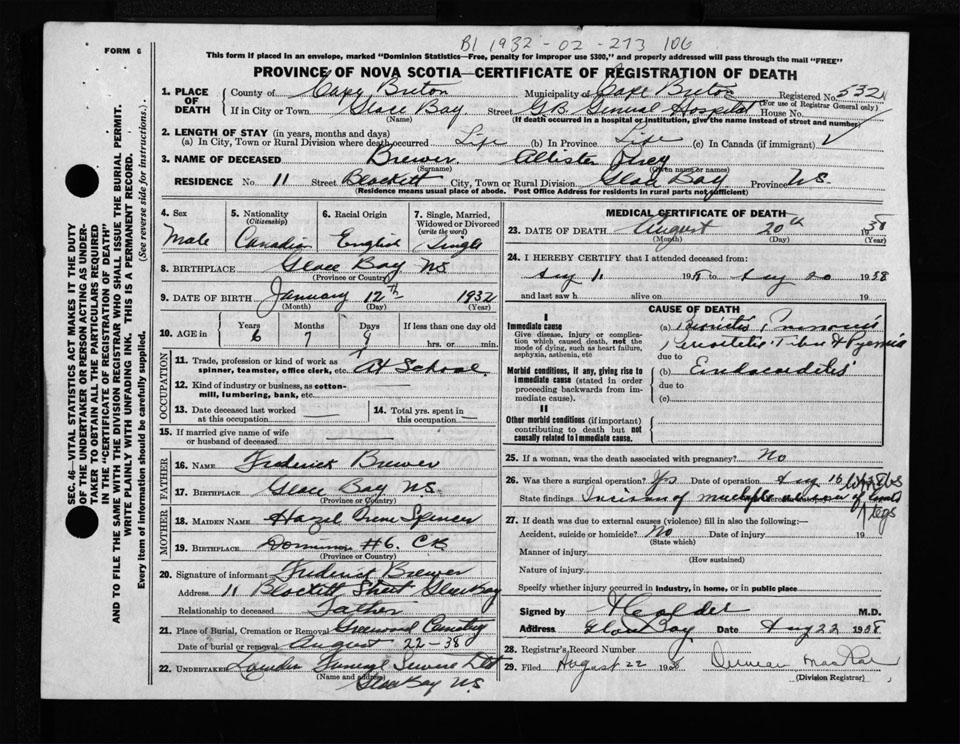 B1 1932-02-273106
FORM 6
This form if placed in an envelope, marked "Dominion Statistics—Free, penalty for improper use $300," and properly addressed will pass through the mail "FREE"
PROVINCE OF NOVA SCOTIA—CERTIFICATE OF REGISTRATION OF DEATH
1. PLACE OF DEATH
County of Cape Breton Municipality of Cape Breton Registered No. 532
(For use of Registrar General only)
If in City or Town Glace Bay Street G.B. General Hospital House No.
(Name) (If death occurred in a hospital or institution, give the name instead of street and number)
2. LENGTH OF STAY (in years, months and days)
(a) In City, Town or Rural Division where death occurred Life (b) In Province Life (c) In Canada (if immigrant)
3. NAME OF DECEASED Brewer Allister
(Surname) (Given name or names)
RESIDENCE No. 11 Street Blackett City, Town or Rural Division Glace Bay Province N.S.
(Residence means usual place of abode. Post Office Address for residents in rural parts not sufficient)
4. Sex
Male
5. Nationality
(Citizenship)
Canadian
6. Racial Origin
English
7. Single, Married, Widowed or Divorced
(write the word)
Single
8. BIRTHPLACE Glace Bay NS
(Province or Country)
9. DATE OF BIRTH January 12th 1932
(Month) (Day) (Year)
10. AGE in
Years Months Days If less than one day old
6 7 9 hrs. or min.
OCCUPATION
11. Trade, profession or kind of work as spinner, teamster, office clerk, etc. At School
12. Kind of industry or business, as cotton-mill, lumbering, bank, etc.
13. Date deceased last worked at this occupation
14. Total yrs. spent in this occupation
15. If married give name of wife or husband of deceased
FATHER
16. NAME Frederick Brewer
17. BIRTHPLACE Glace Bay NS.
(Province or Country)
MOTHER
18. MAIDEN NAME Hazel Irene Spencer
19. BIRTHPLACE Dominion #6. CB
(Province or Country)
20. Signature of informant Frederick Brewer
Address 11 Blackett Street Glace Bay
Relationship to deceased Father
21. Place of Burial, Cremation or Removal Greenwood Cemetery
Date of burial or removal August 22-38
22. UNDERTAKER Funeral Service Ltd
(Name and address)
Glace Bay NS
MEDICAL CERTIFICATE OF DEATH
23. DATE OF DEATH August 20th 1938
(Month) (Day) (Year)
24. I HEREBY CERTIFY that I attended deceased from:
Aug 11 1938 to Aug 20 1938
and last saw h alive on 19
CAUSE OF DEATH
I
Immediate cause
Give disease, injury or complication which caused death, not the mode of dying, such as heart failure, asphyxia, asthenia, etc
(a)
due to
Morbid conditions, if any, giving rise to immediate cause (stated in order proceeding backwards from immediate cause).
(b) Endocarditis
due to
(c)
II
Other morbid conditions (if important) contributing to death but not causally related to immediate cause.
25. If a woman, was the death associated with pregnancy? No
26. Was there a surgical operation? Yes Date of operation Aug 16
State findings Incision of multiple of
legs
27. If death was due to external causes (violence) fill in also the following:—
Accident, suicide or homicide? No Date of injury 19
(State which)
Manner of injury
(How sustained)
Nature of injury
Specify whether injury occurred in industry, in home, or in public place
Signed by M.D.
Address Glace Bay Date Aug 22 1938
28. Registrar's Record Number
29. Filed August 22 1938 Duncan MacRae
(Division Registrar)
SEC. 46—VITAL STATISTICS ACT MAKES IT THE DUTY
OF THE UNDERTAKER OR PERSON ACTING AS UNDERTAKER TO OBTAIN ALL THE PARTICULARS REQUIRED
IN THE "CERTIFICATE OF REGISTRATION OF DEATH"
AND TO FILE THE SAME WITH THE DIVISION REGISTRAR WHO SHALL ISSUE THE BURIAL PERMIT.
WRITE PLAINLY WITH UNFADING INK. THIS IS A PERMANENT RECORD.
Every item of information should be carefully supplied. (See reverse side for instructions.)